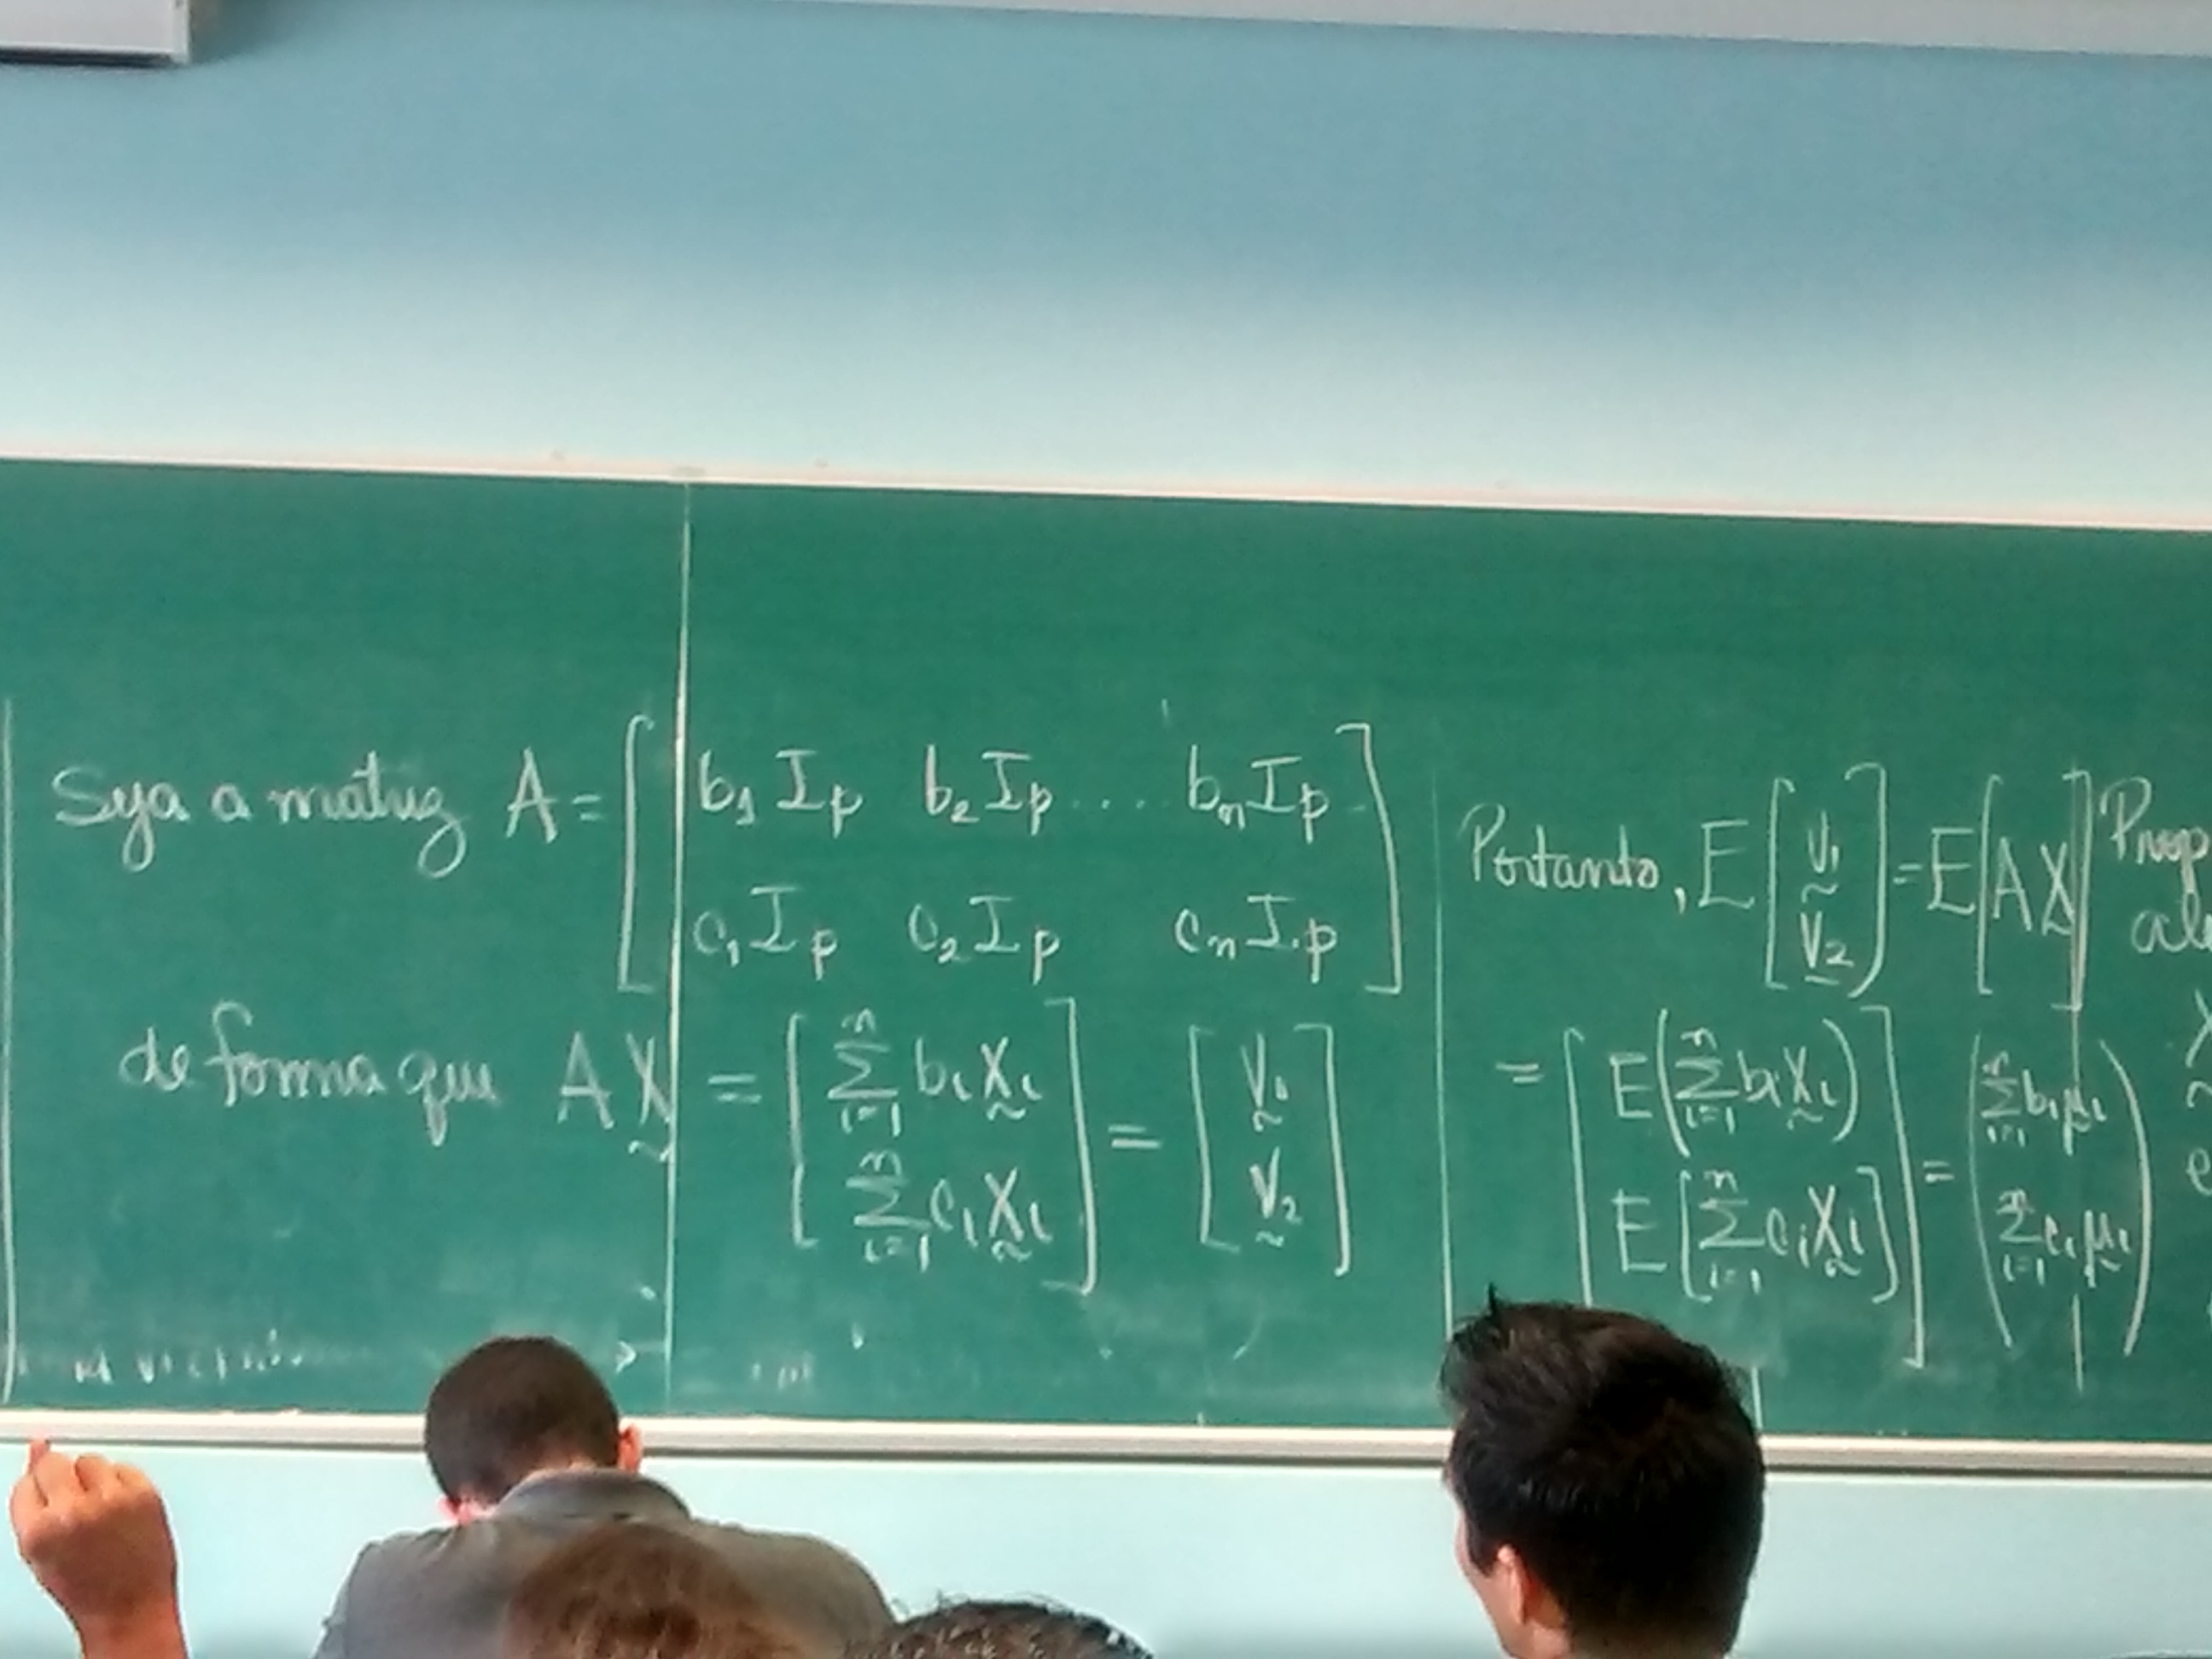 Seja a matriz A = [ b₁ I_p b₂ I_p .... b_n I_p
c₁ I_p c₂ I_p c_n I_p ]
de forma que A X̰ = [ ∑_{i=1}^{n} b_i X̰_i
∑_{i=1}^{n} c_i X̰_i ] = [ V̰₁
V̰₂ ]
Portanto, E [ V̰₁
V̰₂ ] = E[A X̰]
= [ E(∑_{i=1}^{n} b_i X̰_i)
E[∑_{i=1}^{n} c_i X̰_i] ] = ( ∑_{i=1}^{n} b_i μ̰_i
∑_{i=1}^{n} c_i μ̰_i )
Prop